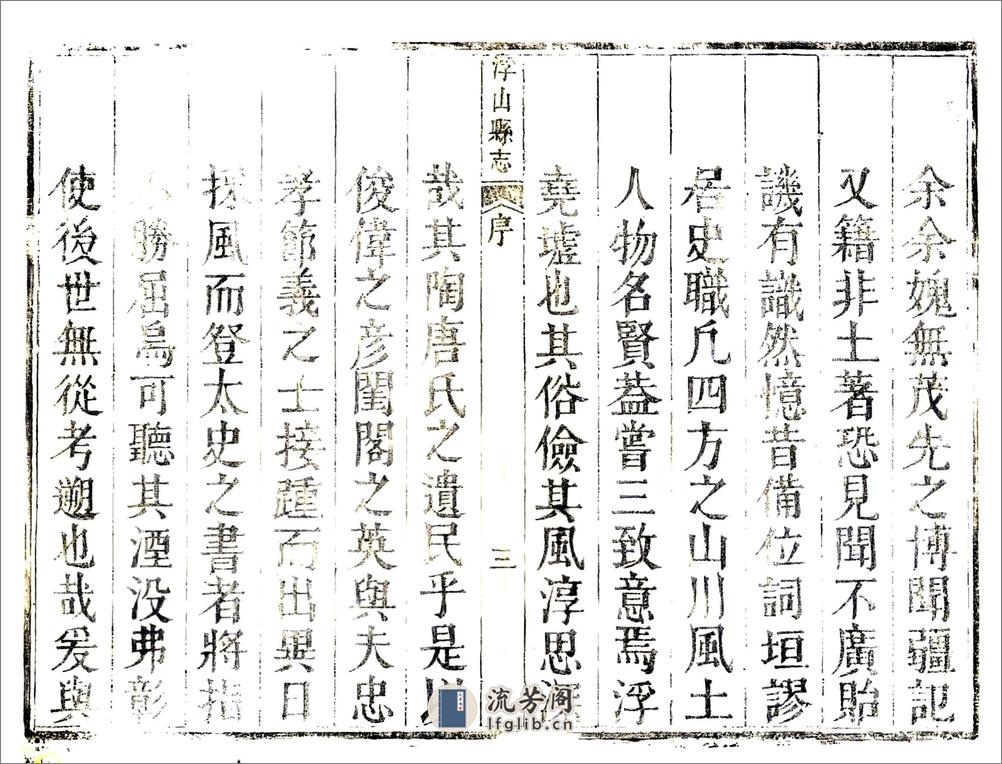 余余媿無茂先之博聞疆記
又籍非土著恐見聞不廣貽
譏有識然憶昔備位詞垣謬
居史職凡四方之山川風土
人物名賢葢嘗三致意焉浮
堯墟也其俗儉其風淳思深
浮山縣志 序 三
哉其陶唐氏之遺民乎是以
俊偉之彥閨閣之英與夫忠
孝節義之士接踵而出異日
採風而登太史之書者將指
勝屈烏可聽其湮没弗彰
使後世無從考遡也哉爰與
流芳阁
lfglib.cn